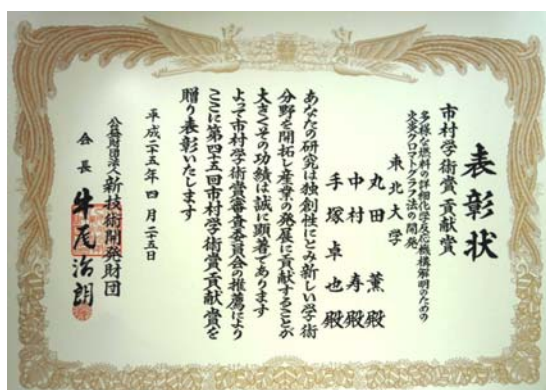 表彰状
市村学術賞 貢献賞
多様な燃料の詳細化学反応機構解明のための
火炎クロマトグラフ法の開発
東北大学
丸田 薫殿
中村 寿殿
手塚卓也殿
あなたの研究は独創性にとみ新しい学術
分野を開拓し産業の発展に貢献することが
大きくその功績は誠に顕著であります
よって市村学術賞審査委員会の推薦により
ここに第四十五回市村学術賞貢献賞を
贈り表彰いたします
平成二十五年四月二十五日
公益財団法人新技術開発財団
会長 牛尾治朗